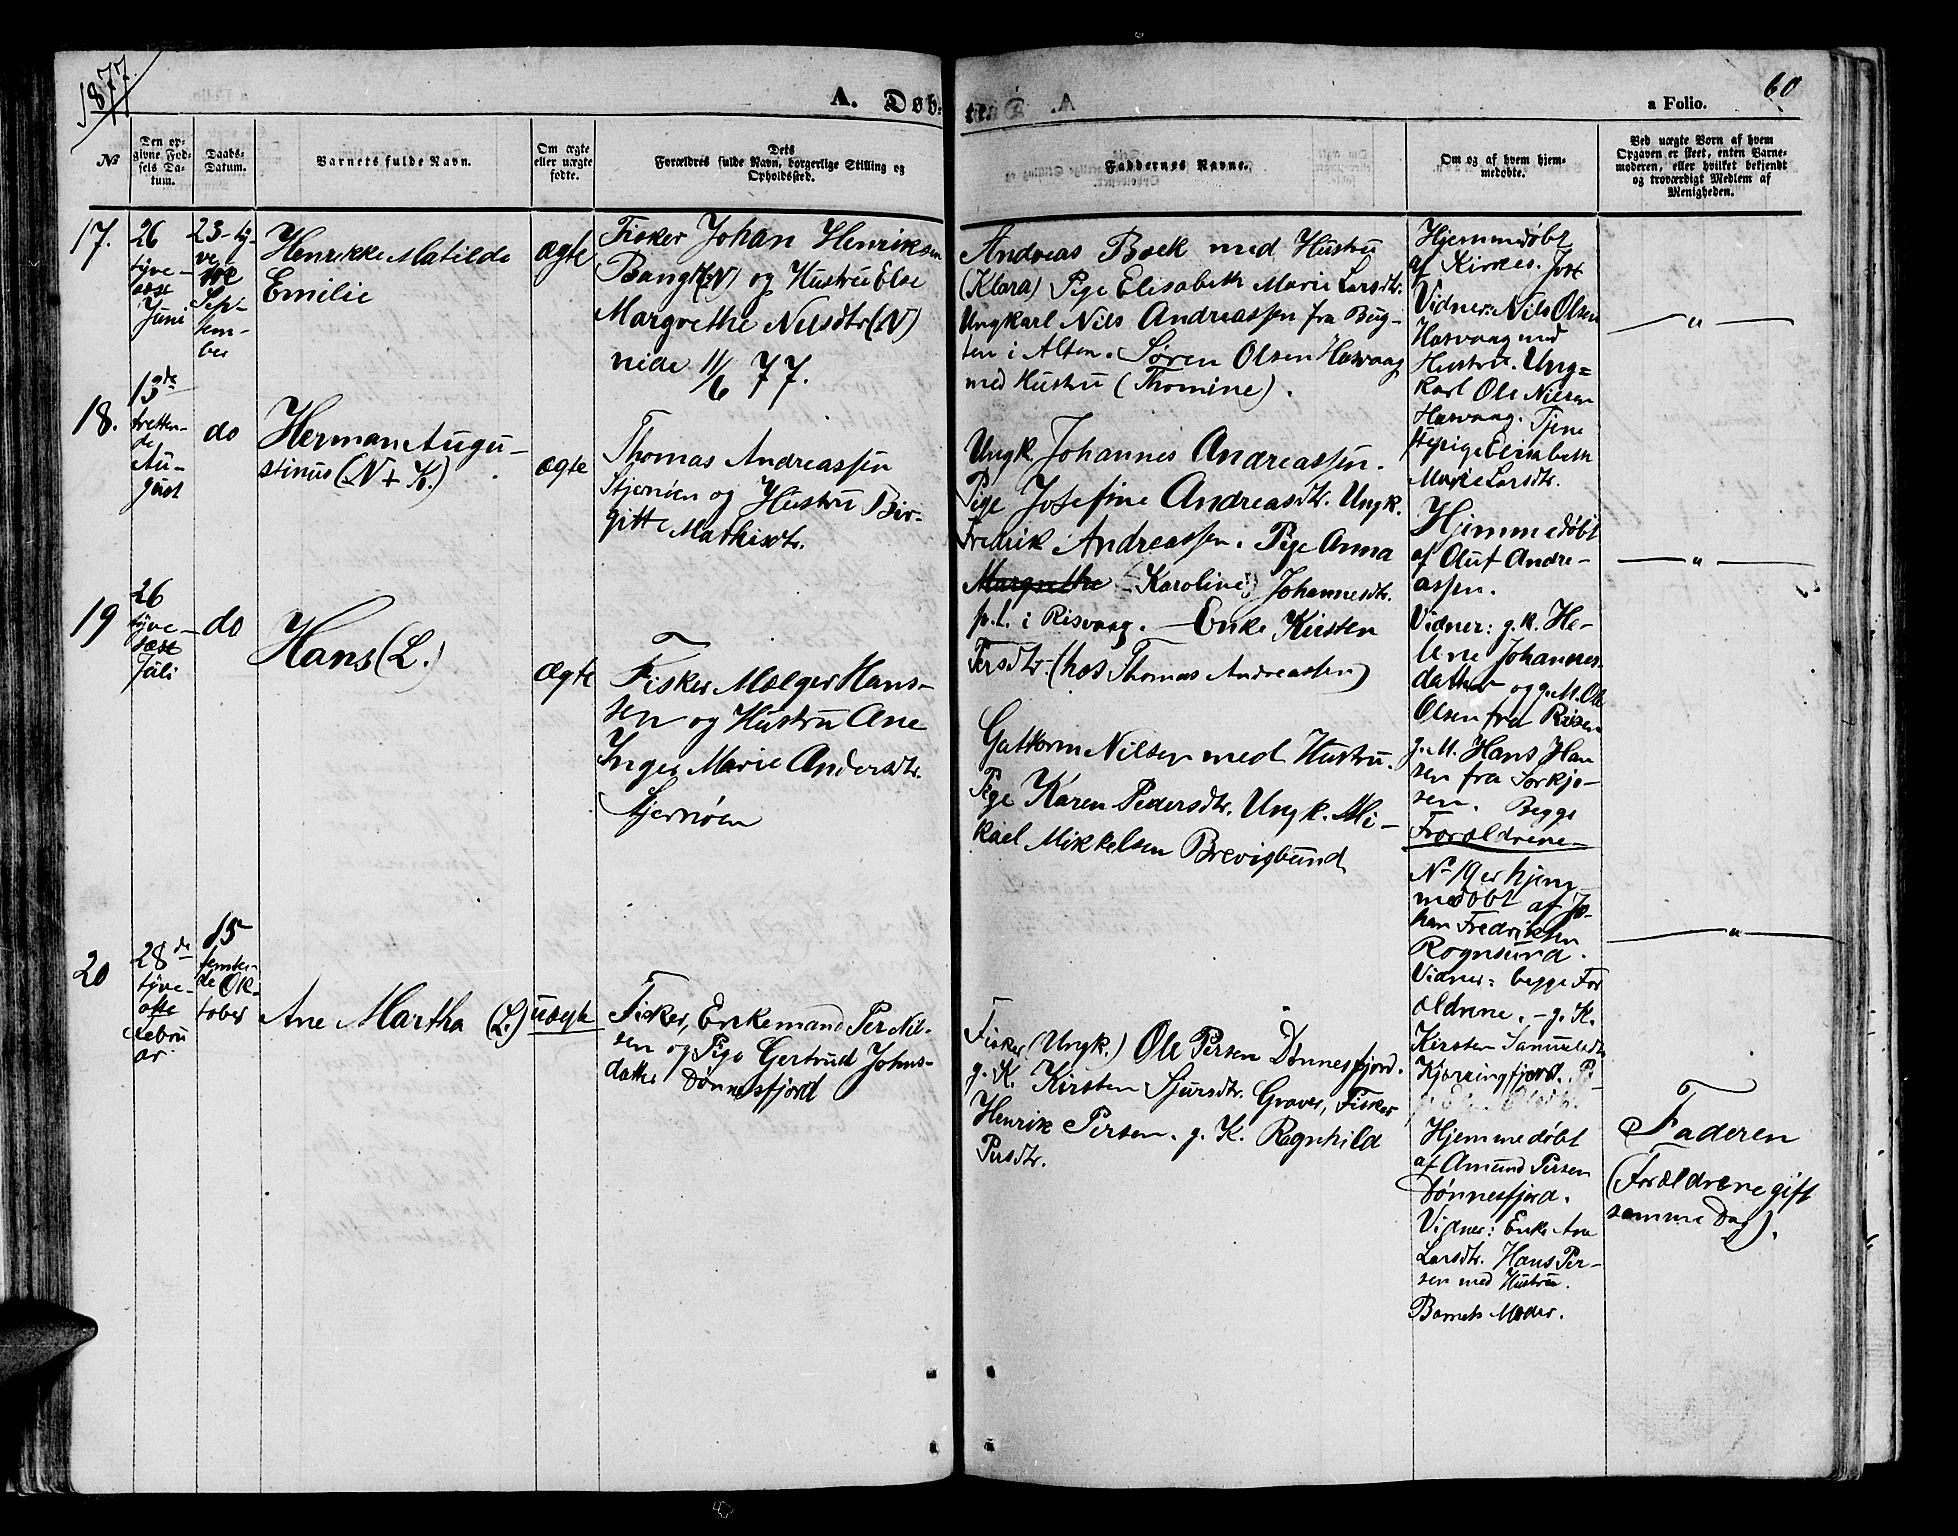 1877.
A. Døb-
te.
a Folio.
60
No
Den op-
givne Fød-
sels Da-
tum.
Daabs-
Datum.
Barnets fulde Navn.
Om ægte
eller uægte
fødte.
Dets
Forældres fulde Navn, borgerlige Stilling og
Opholdssted.
Faddernes Navne.
Om og af hvem hjem-
medøbt.
Ved uægte Børn af hvem
Opgaven er skeet, enten Barne-
moderen, eller hvilket bekjendt
og troværdigt Medlem af
Menigheden.
17.
26
tyve-
sex
Juni
23- ty-
ve
Sep-
tem-
ber
Henrikke Matilde
Emilie
ægte
Fisker Johan Henriksen
Bang (N) og Hustru Else
Margrethe Nilsdtr (N)
nide 11/6 77.
Andreas Boek med Hustru
(Klara) Pige Elisabeth Marie Larsdtr.
Ungkarl Nils Andreassen fra Bug-
ten i Alten. Søren Olsen Hasvaag
med Hustru (Thomine).
Hjemmedøbt
af Kirkes.
Vidner: Nils Olsen
Hasvaag med
Hustru. Ung=
karl Ole Nilsen
Hasvaag. Tjene
stepige Elisabeth
Marie Larsdtr.
— " —
18.
13de
tretten-
de
Au-
gust
do
Herman Augu-
stinus (N + K.)
ægte
Thomas Andreassen
Stjernøen og Hustru Bir-
gitte Mathisdtr.
Ungk. Johannes Andreassen.
Pige Josefine Andreasdtr. Ungk.
Fredrik Andreassen. Pige Anna
Margrethe (Karoline) Johannesdtr.
p.t. i Risvaag. – Enke Kirsten
Persdtr. (hos Thomas Andreassen)
Hjemmedøbt
af Oluf Andre-
assen.
Vidner: g. K. He-
lene Johannes-
datter og g. M. Ole
Olsen fra
g. M. Hans Han
sen fra Sørkjo-
sen. Begge
Forældrene
— " —
19
26
tyve-
sex
Juli
do
Hans (L.)
Ægte
Fisker Mælger Hans-
sen og Hustru Ane
Inger Marie Andersdtr.
Stjernøen
Nilsen med Hustru.
Pige Karen Pedersdtr. Ungk. Mi-
kael Mikkelsen
No 19 er hjem-
medøbt af Jo-
han Fredriksen
Rognsund.
Vidner: begge For
ældrene. – g. K.
Kirsten Samuelsdtr
— " —
20
28de
tyve-
otte
Febru
ar
15
femten-
de Ok-
tober
Ane Martha (L.)
uægte
Fisker, Enkemand Per Nil-
sen og Pige Gertrud Johns-
datter Dønnesfjord
Fisker (Ungk.) Ole Persen Dønnesfjord.
g. K. Kirsten Sjursdtr. Graver, Fisker
Henrik Persen. g. K. Ragnhild
Persdtr.
Hjemmedøbt
af Amund Persen
Dønnesfjord.
Vidner: Enke Ane
Larsdtr. Hans Per-
sen med Hustru.
Barnets Moder.
Faderen
(Forældrene gift
samme Dag).